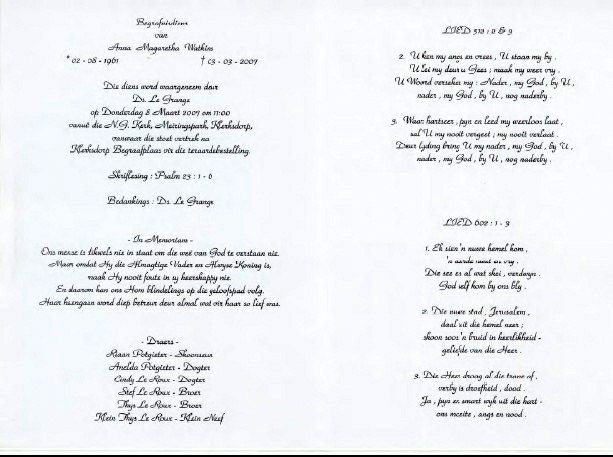 Begrafnisdiens
van
Anna Magaretha Watkins
* 02 - 08 - 1961 † 03 - 03 - 2007
Die diens word waargeneem deur
Ds. Le Grange
op Donderdag 8 Maart 2007 om 11:00
vanuit die N.G. Kerk, Meiringspark, Klerksdorp,
vanwaar die stoet vertrek na
Klerksdorp Begraafplaas vir die teraardebestelling.
Skriflesing : Psalm 23 : 1 - 6
Bedankings : Ds. Le Grange
- In Memoriam -
Ons mense is dikwels nie in staat om die weë van God te verstaan nie.
Maar omdat Hy die Almagtige Vader en Alwyse Koning is,
maak Hy nooit foute in sy heerskappy nie.
En daarom kan ons Hom blindelings op die geloofspad volg.
Haar heengaan word diep betreur deur almal wat vir haar so lief was.
- Draers -
Riaan Potgieter - Skoonseun
Anelda Potgieter - Dogter
Cindy Le Roux - Dogter
Stef Le Roux - Broer
Thys Le Roux - Broer
Klein Thys Le Roux - Klein Neef
LIED 518 : 2 & 3
2. U ken my angs en vrees , U staan my by .
U lei my deur u Gees ; maak my weer vry .
U Woord verseker my : Nader , my God , by U ,
nader , my God , by U , nog naderby .
3. Waar hartseer , pyn en leed my weerloos laat ,
sal U my nooit vergeet ; my nooit verlaat .
Deur lyding bring U my nader , my God , by U ,
nader , my God , by U , nog naderby .
LIED 602 : 1 - 3
1. Ek sien 'n nuwe hemel kom ,
'n aarde nuut en vry .
Die see es al wat skei , verdwyn .
God self kom by ons bly .
2. Die nuwe stad , Jerusalem ,
daal uit die hemel neer ;
skoon soos 'n bruid in heerlikheid -
geliefde van die Heer .
3. Die Heer droog al die trane af ,
verby is droefheid , dood .
Ja , pyn en smart wyk uit die hart -
ons moeite , angs en nood .